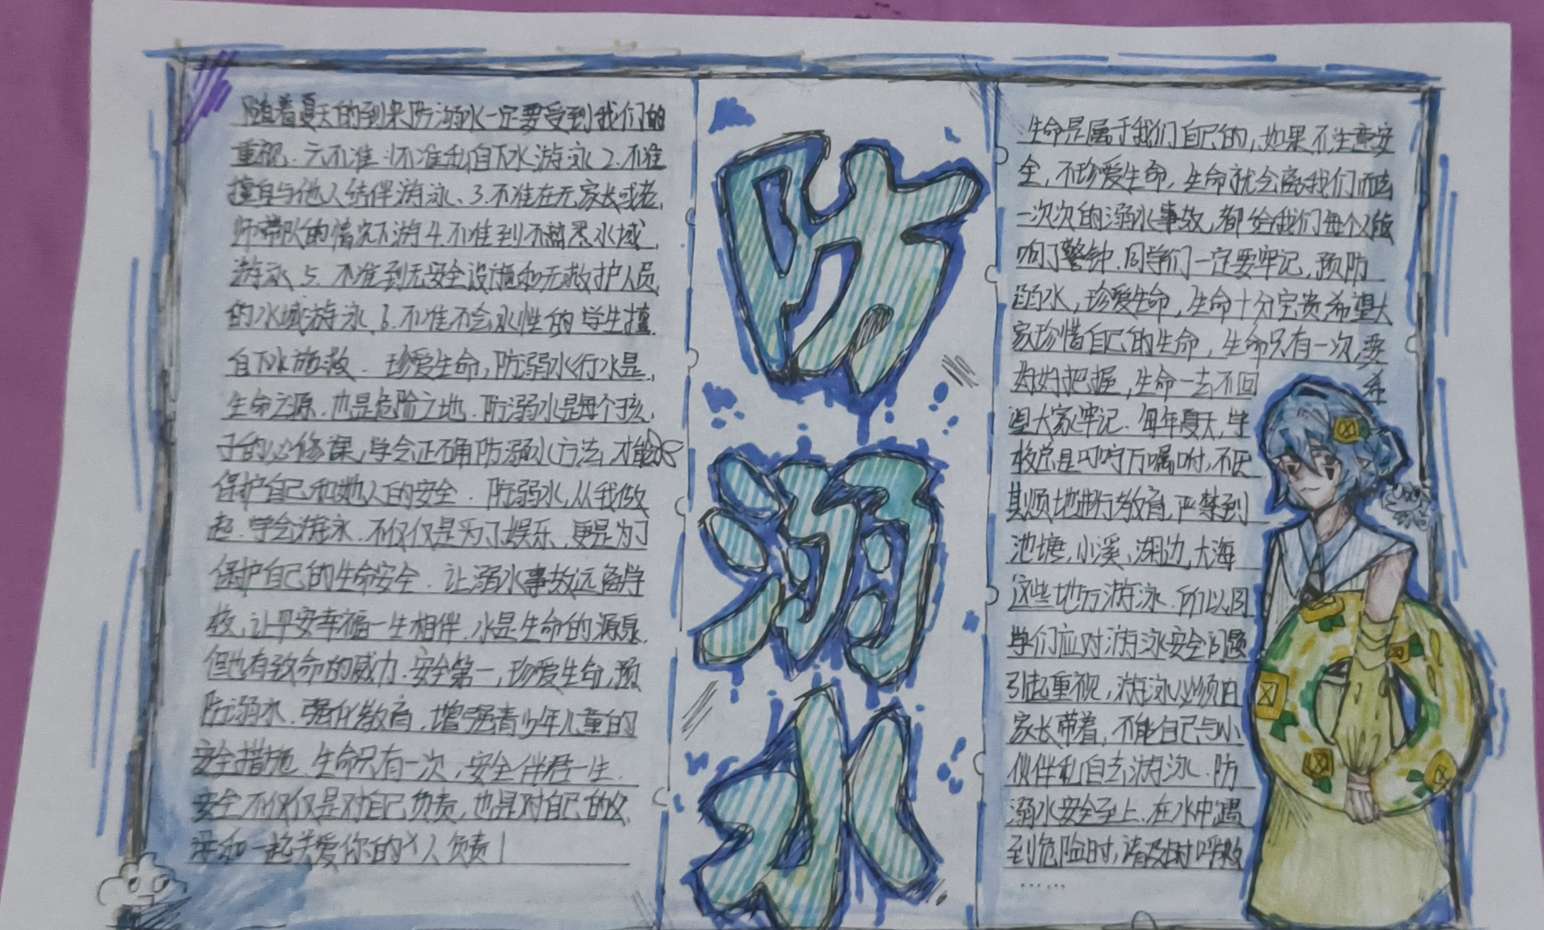 随着夏天的到来防溺水一定要受到我们的
重视.六不准.1.不准私自下水游泳2.不准
擅自与他人结伴游泳、3.不准在无家长或老
师带队的情况下游4.不准到不熟悉水域
游泳5.不准到无安全设施和无救护人员
的水域游泳.6.不准不会水性的学生擅
自下水施救.珍爱生命,防溺水行水是
生命之源.也是危险之地.防溺水是每个孩
子的必修课,学会正确防溺水方法,才能
保护自己和他人的安全.防溺水,从我做
起.学会游泳.不仅仅是为了娱乐、更是为了
保护自己的生命安全.让溺水事故远离学
校,让平安幸福一生相伴.水是生命的源泉
但也有致命的威力.安全第一,珍爱生命,预
防溺水.强化教育,增强青少年儿童的
安全措施.生命只有一次,安全伴君一生.
安全不仅仅是对自己负责,也是对自己的父
和一起关爱你的人负责!
防溺水
生命是属于我们自己的,如果不注意安
全,不珍爱生命,生命就会离我们而去
一次次的溺水事故,都给我们每个人敲
响了警钟.同学们一定要牢记,预防
溺水,珍爱生命,生命十分宝贵希望大
家珍惜自己的生命,生命只有一次,要
好好把握,生命一去不回
望大家牢记.每年夏天,学
校总是叮咛万嘱咐,不厌
其烦地进行教育,严禁到
池塘、小溪、湖边、大海
这些地方游泳.所以同
学们应对游泳安全问题
引起重视,游泳必须由
家长带着,不能自己与小
伙伴私自去游泳.防
溺水安全至上.在水中遇
到危险时,请及时呼救
……